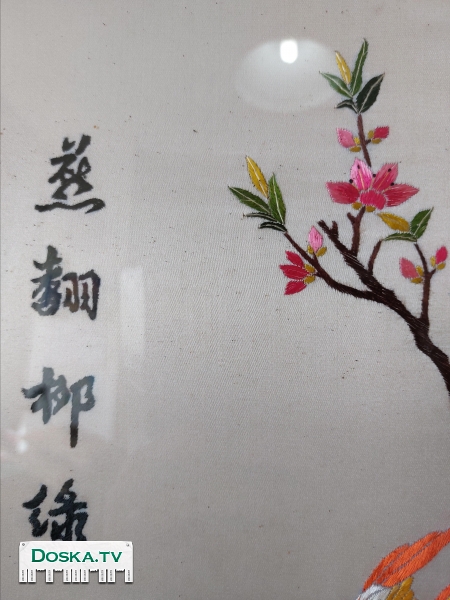 燕翻柳綠
DOSKA.TV